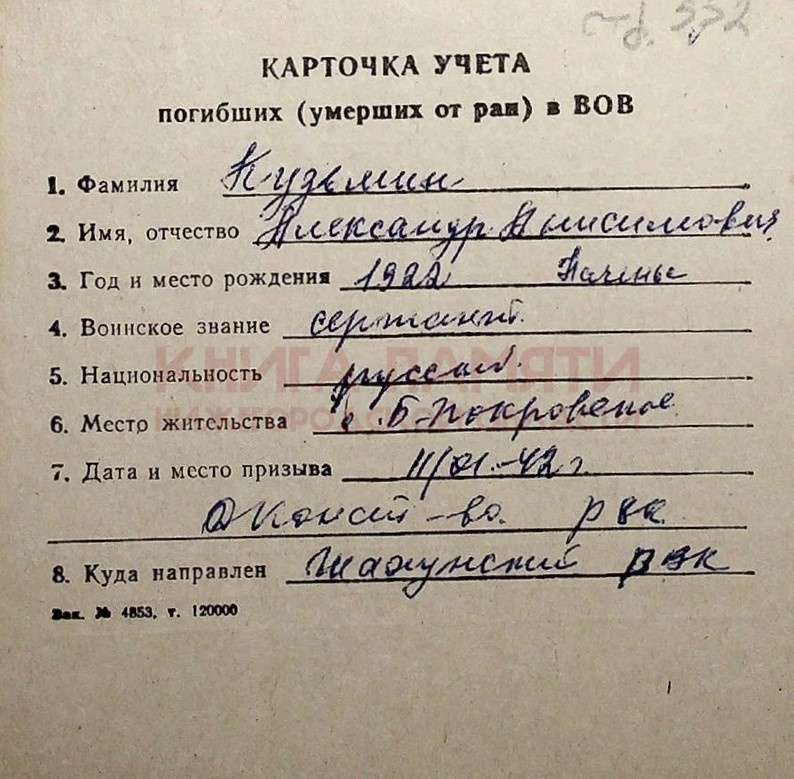 стр. 332
КАРТОЧКА УЧЕТА
погибших (умерших от ран) в ВОВ
1. Фамилия Кузьмин
2. Имя, отчество Александр Анисимович
3. Год и место рождения 1922
4. Воинское звание сержант.
КНИГА ПАМЯТИ
5. Национальность русский.
НИЖЕГОРОДСКОЙ ОБЛАСТИ
6. Место жительства с. Б-Покровское
7. Дата и место призыва 11/01-42 г.
рвк
8. Куда направлен Шахунский рвк
Зак. № 4853, т. 120000